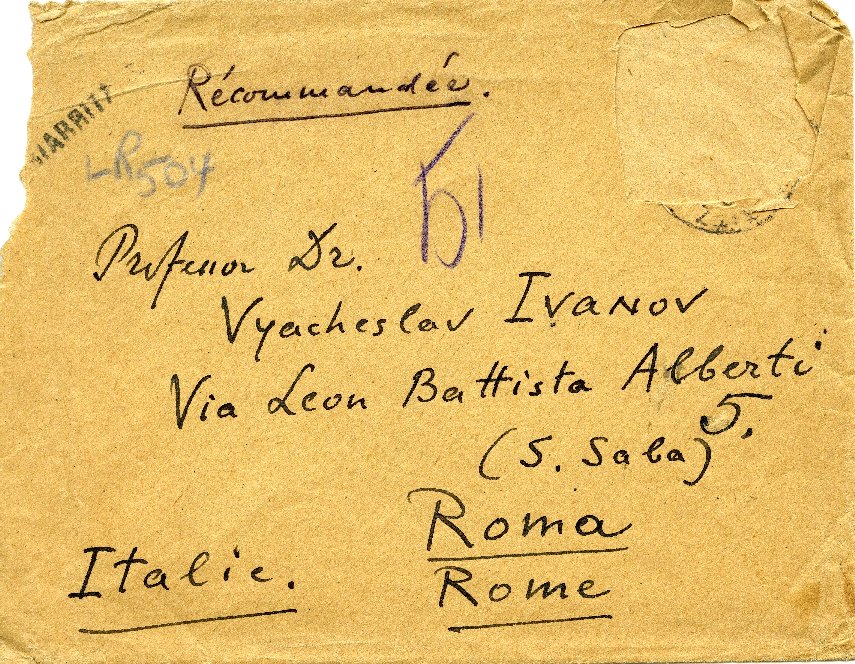 Récommandée.
LR 504
Professor Dr.
Vyacheslav Ivanov
Via Leon Battista Alberti
5.
(S. Saba)
Roma
Italie.
Rome